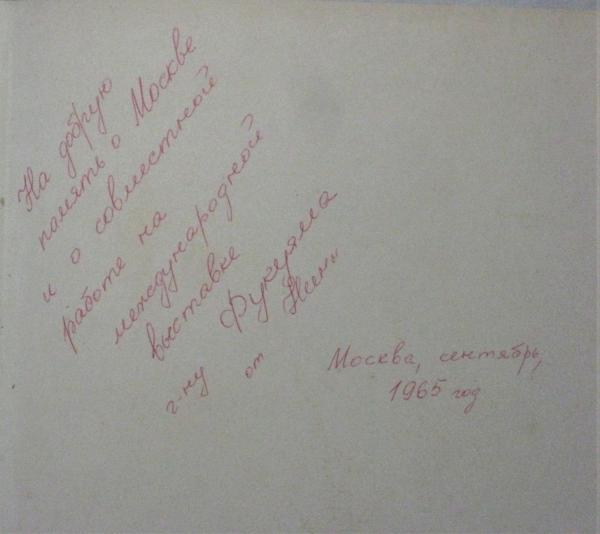 На добрую
память о Москве
и о совместной
работе на
международной
выставке
г-ну Фукуяма
от
Москва, сентябрь,
1965 год